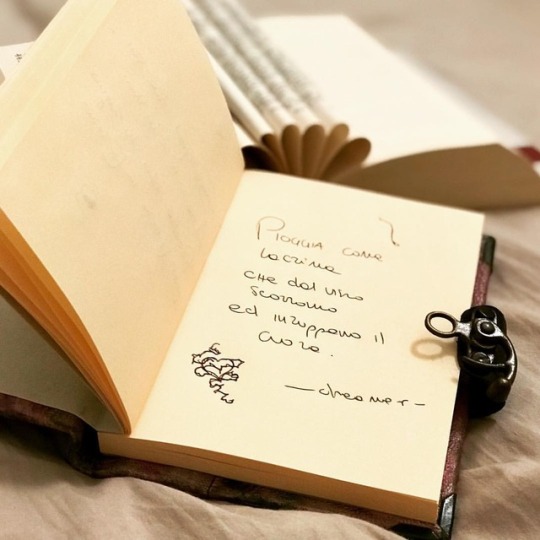 Pioggia come
lacrime
che dal viso
scorrono
ed inzuppano il
cuore.
—dreamer-